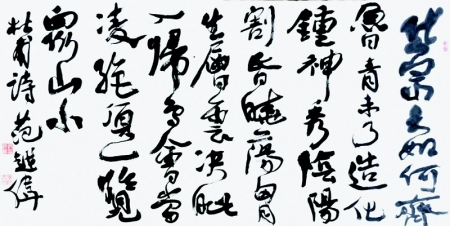 岱宗夫如何齊
魯青未了造化
鍾神秀陰陽
割昏曉蕩胸
生層雲決眦
入歸鳥會當
凌絕頂一覽
眾山小
杜甫詩 范